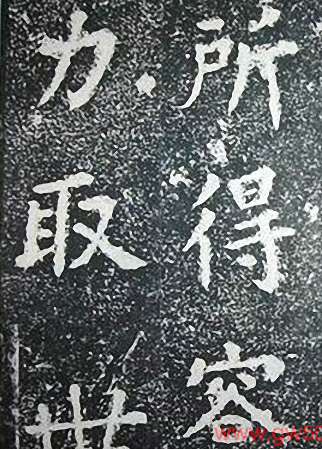 所得容
力取世
www.gw50